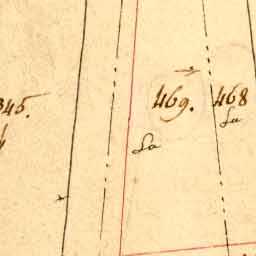 345.
469.
468
La
La